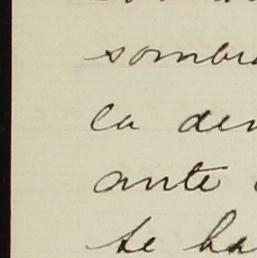 sombr
ca den
ante
te ha